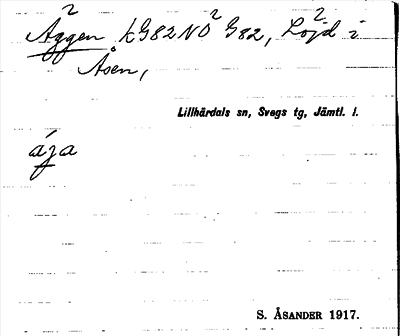 Aggen kG82NO² G82, Löjd i
Åsen,
Lillhärdals sn, Svegs tg, Jämtl. l.
S. ÅSANDER 1917.